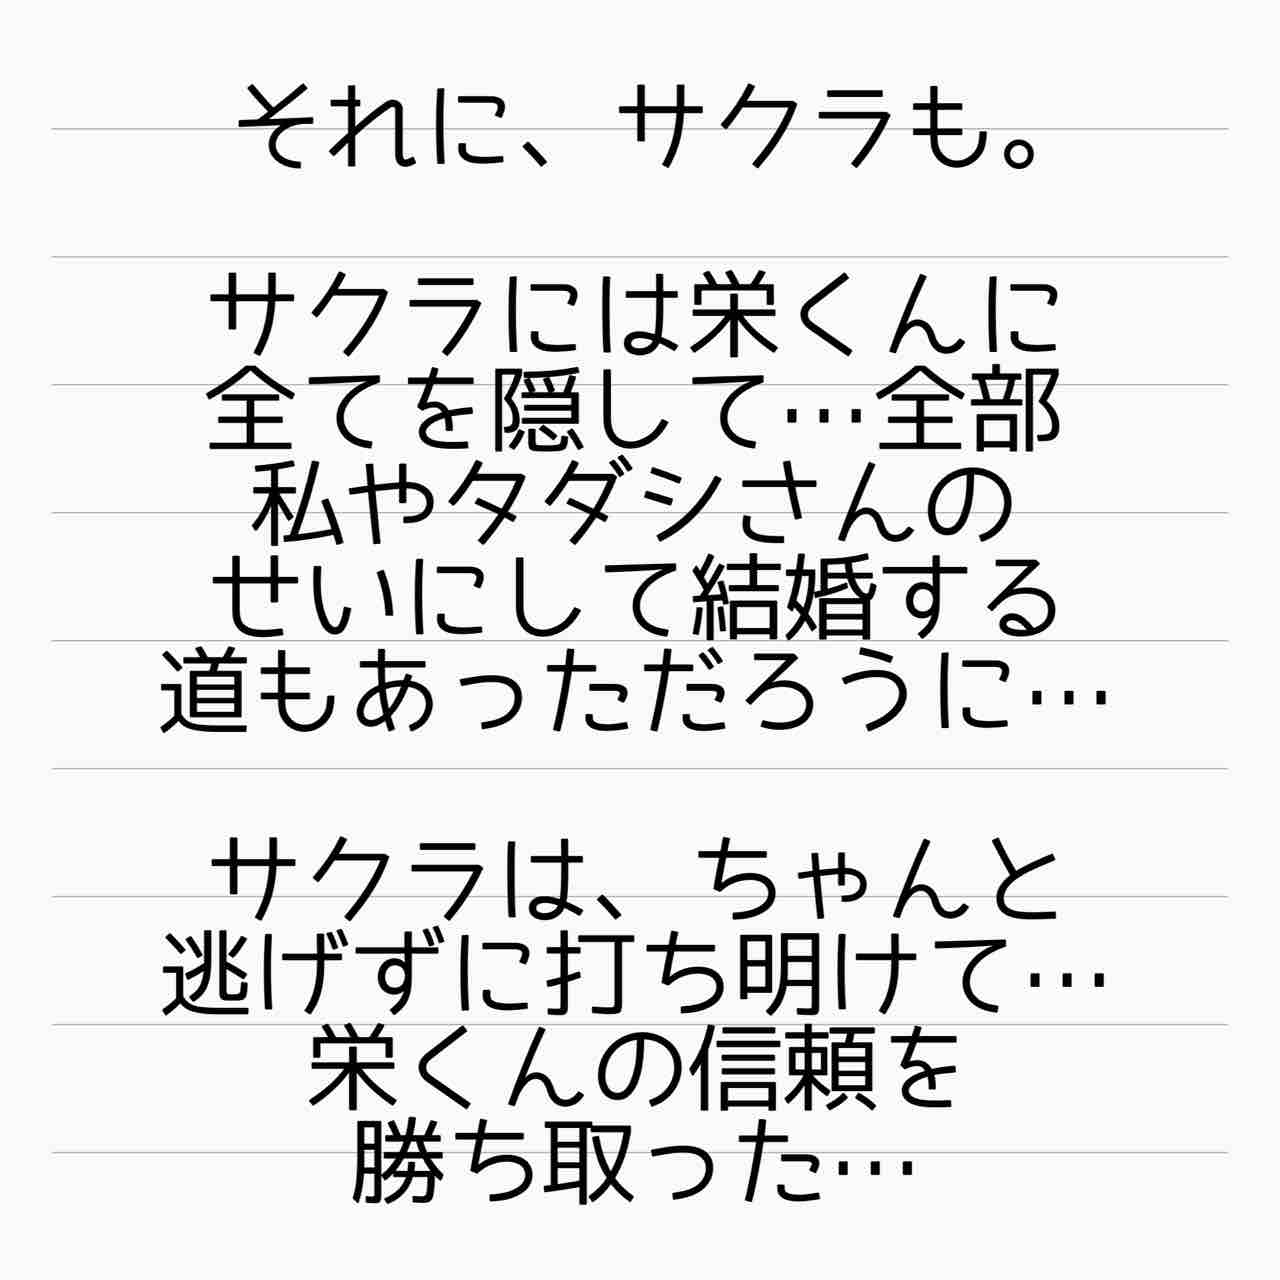 それに、サクラも。
サクラには栄くんに
全てを隠して…全部
私やタダシさんの
せいにして結婚する
道もあっただろうに…
サクラは、ちゃんと
逃げずに打ち明けて…
栄くんの信頼を
勝ち取った…